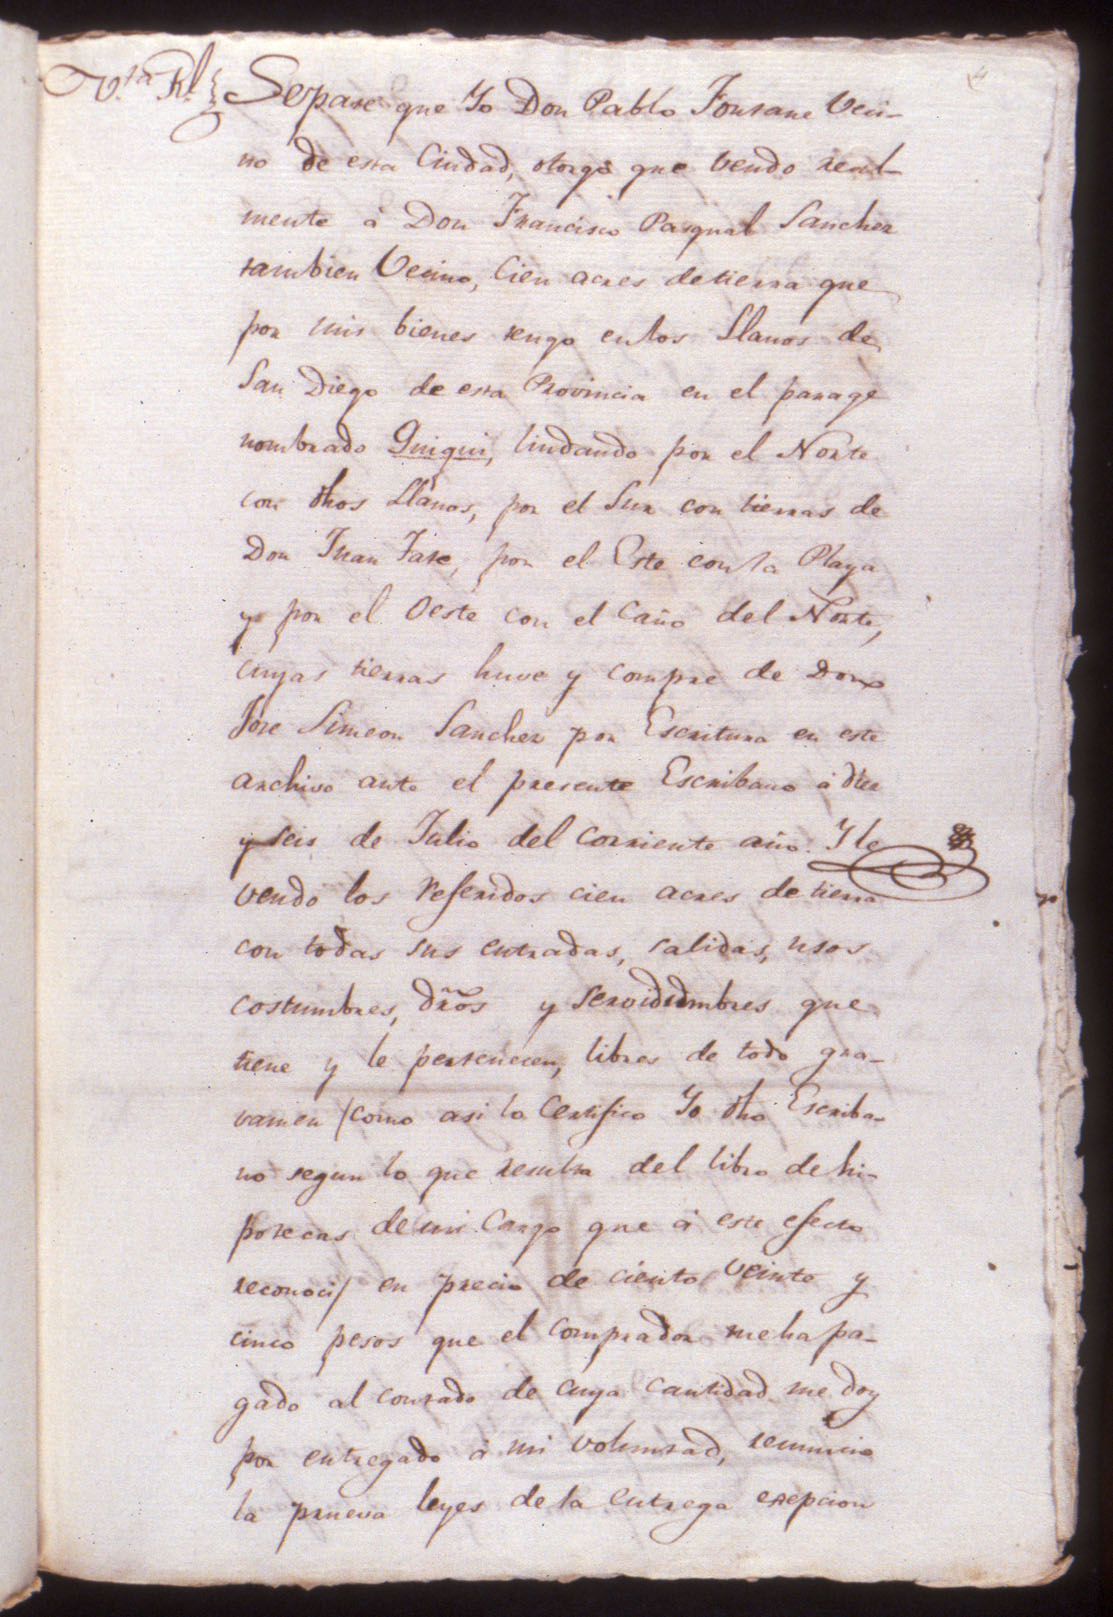 V.ta R.l Sepase que Yo Don Pablo Fontane Veci-
no de esta Ciudad, otorgo que vendo real-
mente á Don Francisco Pasqual Sanchez
tambien Vecino, Cien acres de tierra que
por mis bienes tengo en los Llanos de
San Diego de esta Provincia en el parage
nombrado Quiqui, lindando por el Norte
con dhos Llanos, por el Sur con tierras de
Don Juan, por el Este con la Playa
y por el Oeste con el Caño del Norte,
cuyas tierras huve y compre de Don
Jose Simeon Sanchez por Escritura en este
archivo ante el presente Escribano á diez
y seis de Julio del corriente año. Y le
vendo los referidos cien acres de tierra
con todas sus entradas, salidas, usos
costumbres, dros y servidumbres que
tiene y le pertenecen, libres de todo gra-
vamen /como asi lo Certifico Yo dho Escriba-
no segun lo que resulta del libro de hi-
potecas de mi Cargo que á este efecto
reconoci/ en precio de ciento veinte y
cinco pesos que el Comprador me ha pa-
gado al contado de cuya Cantidad me doy
por entregado á mi voluntad, renuncio
la prueva leyes de la entrega exepcion